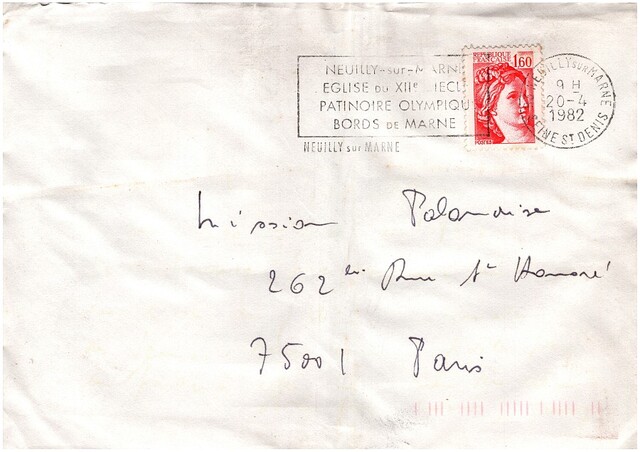 NEUILLY-sur-MARNE
EGLISE DU XIIe SIECLE
PATINOIRE OLYMPIQUE
BORDS DE MARNE
NEUILLY sur MARNE
REPUBLIQUE FRANCAISE 1,60
POSTES
NEUILLY sur MARNE
9 H
20-4
1982
SEINE ST DENIS
Mission Polonaise
262 bis Rue St Honoré
75001 Paris